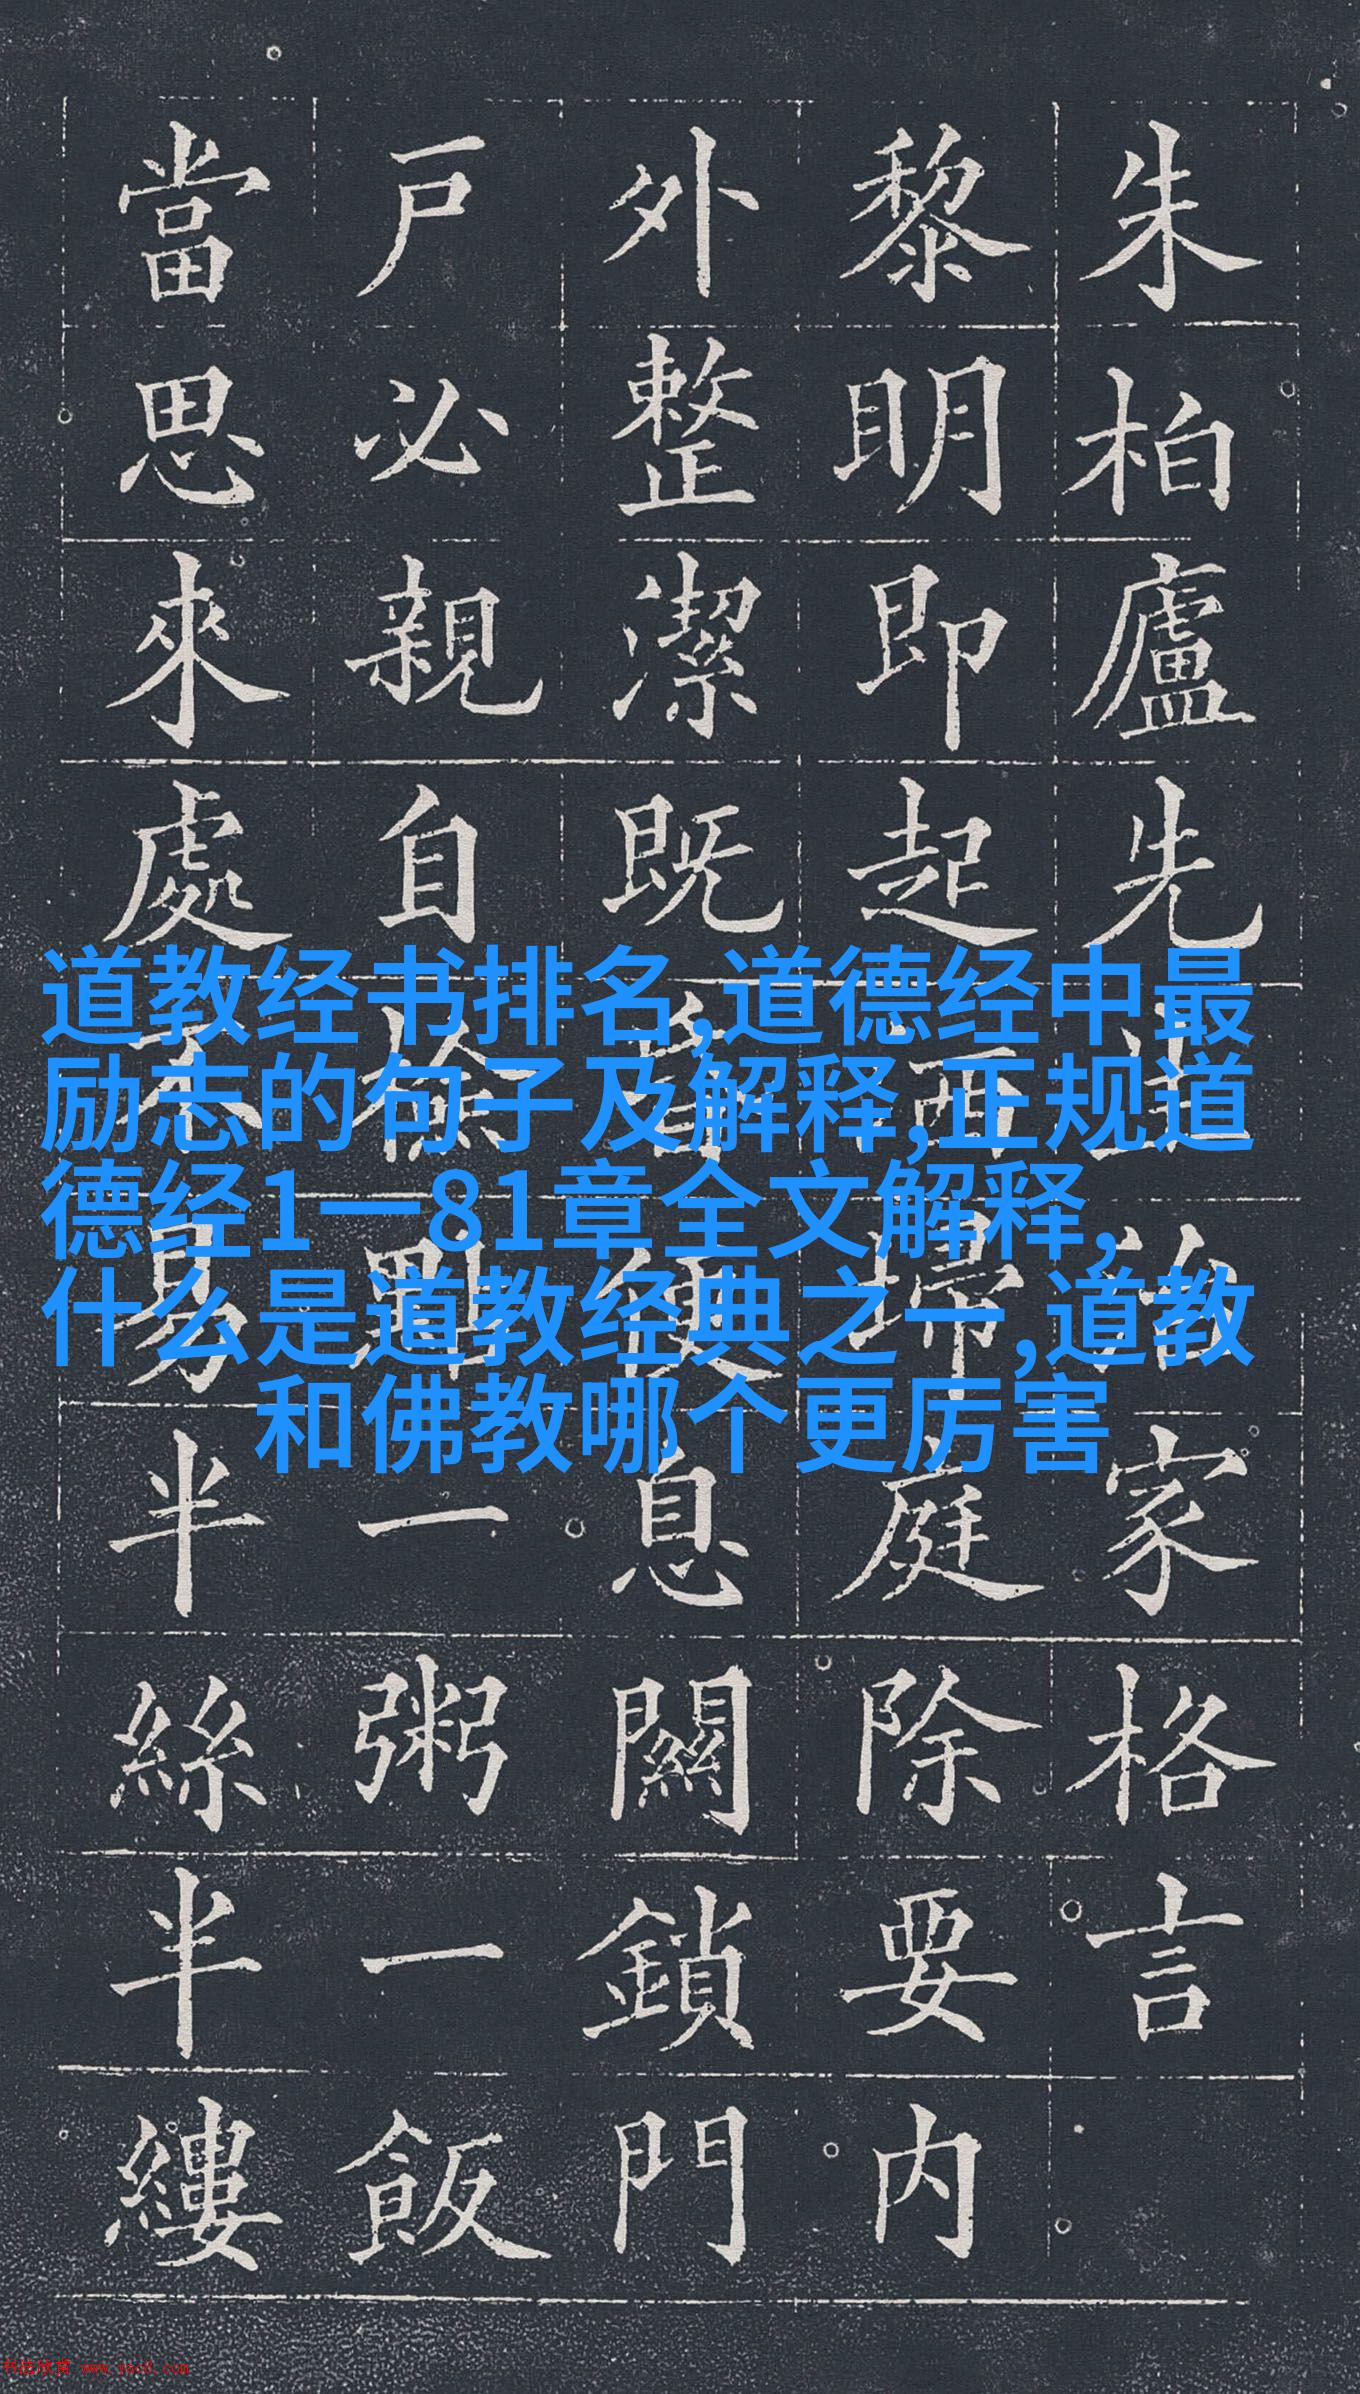 朱柏廬先生治家格言
黎明即起洒掃庭除要内
外整潔既昏便息關鎖門
戸必親自檢點一粥一飯
當思來處不易半絲半縷
道教经书排名,道德经中最
励志的句子及解释,正规道
德经1一81章全文解释,
什么是道教经典之一,道教
和佛教哪个更厉害
书法欣赏 www.yac8.com